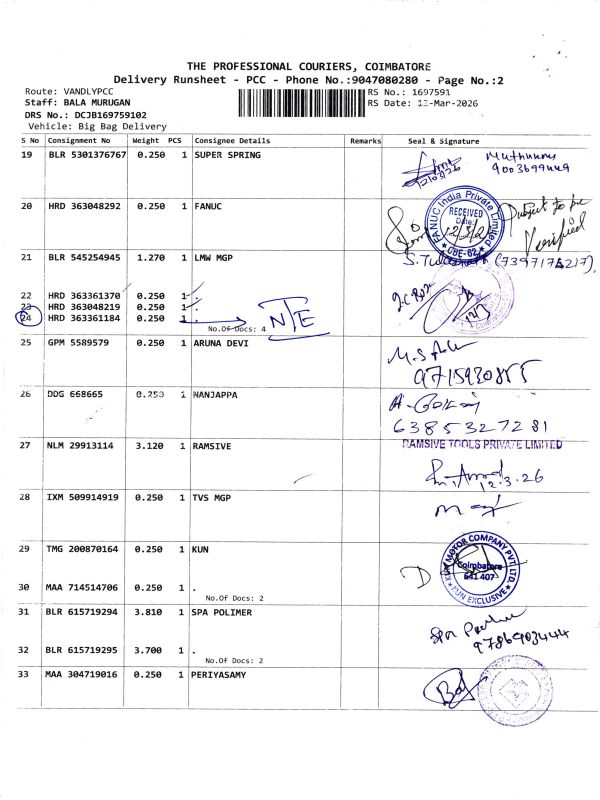 THE PROFESSIONAL COURIERS, COIMBATORE
Delivery Runsheet - PCC - Phone No.:9047080280 - Page No.:2
Route: VANDLYPCC
RS No.: 1697591
Staff: BALA MURUGAN
RS Date: 12-Mar-2026
DRS No.: DCJB169759102
Vehicle: Big Bag Delivery
S No Consignment No Weight PCS Consignee Details Remarks Seal & Signature
19 BLR 5301376767 0.250 1 SUPER SPRING
12/03/26
9003699449
20 HRD 363048292 0.250 1 FANUC
FANUC India Private Limited
RECEIVED
Date:
12/3/26
CBE-62
Subject to be
Verified
21 BLR 545254945 1.270 1 LMW MGP
(7397178217)
22 HRD 363361370 0.250 1 .
23 HRD 363048219 0.250 1 .
24 HRD 363361184 0.250 1 .
No.Of Docs: 4
NTE
12/3
25 GPM 5589579 0.250 1 ARUNA DEVI
9715930855
26 DDG 668665 0.250 1 NANJAPPA
6385327281
27 NLM 29913114 3.120 1 RAMSIVE
RAMSIVE TOOLS PRIVATE LIMITED
12.3.26
28 IXM 509914919 0.250 1 TVS MGP
29 TMG 200870164 0.250 1 KUN
KUN MOTOR COMPANY PVT. LTD.
Coimbatore
641 407
KUN EXCLUSIVE
30 MAA 714514706 0.250 1 .
No.Of Docs: 2
31 BLR 615719294 3.810 1 SPA POLIMER
9786903444
32 BLR 615719295 3.700 1 .
No.Of Docs: 2
33 MAA 304719016 0.250 1 PERIYASAMY